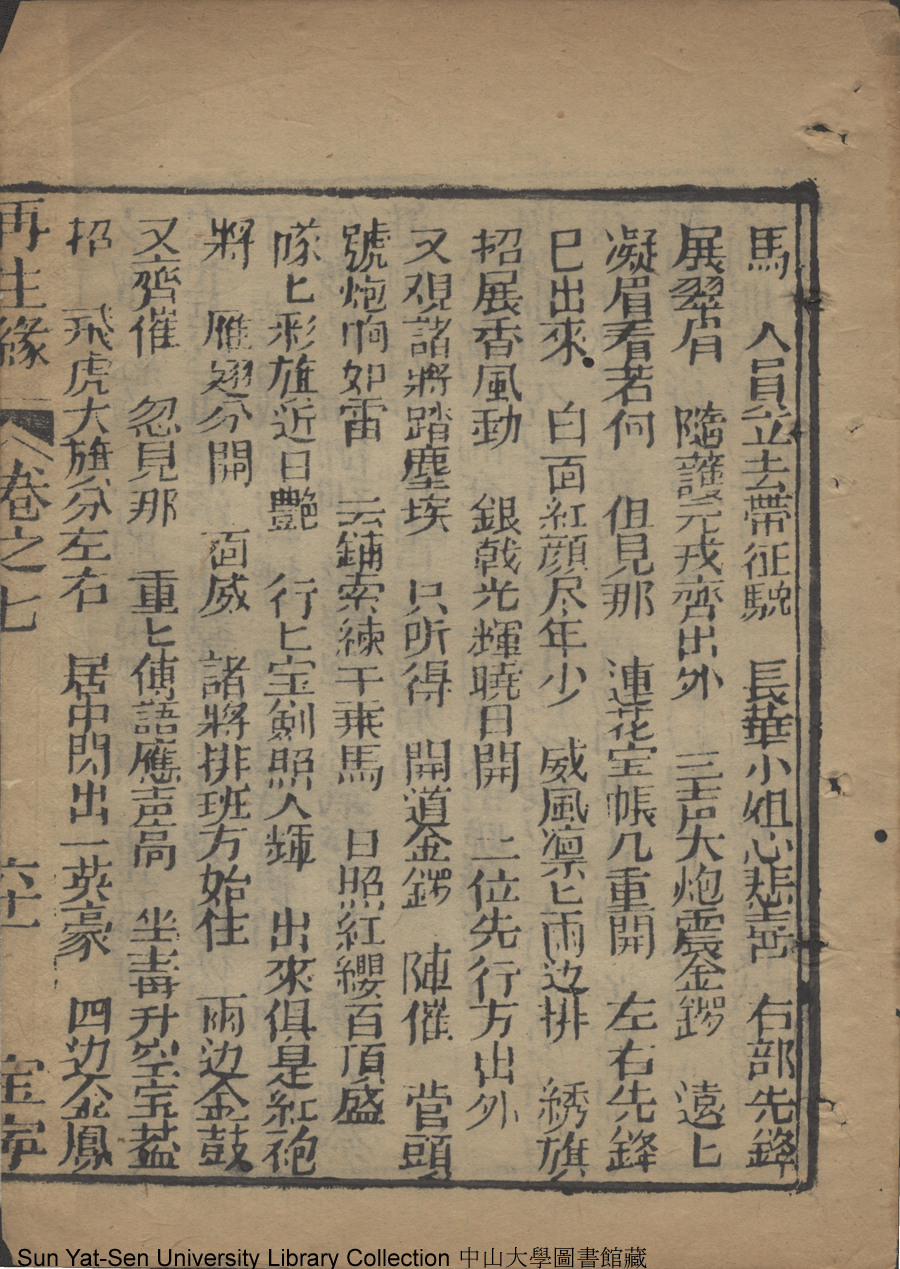 馬 人員並去帶征駞 長華小姐心悲喜 右部先鋒
展翠眉 隨護元戎齊出外 三声大炮震金鑼 遠匕
凝眉看若何 但見那 連花宝帳几重開 左右先鋒
已出來 白面紅顔尽年少 威風凛匕兩边排 綉旗
招展香風動 銀戟光輝曉日開 二位先行方出外
又覌諸將踏塵埃 只所得 開道金鑼 陣催 営頭
號炮响如雷 云鋪索練千乘馬 日照紅纓百頂盛
隊匕彩旗近日艷 行匕宝劍照人輝 出來俱是紅袍
將 雁翅分開 面威 諸將排班方始住 兩边金鼓
又齊催 忽見那 重匕傳語應声高 坐纛升空宝盖
招 飛虎大旗分左右 居中閃出一英豪 四边金鳳
再生緣 卷之七 六十一 宝寧
Sun Yat-Sen University Library Collection 中山大學圖書館藏